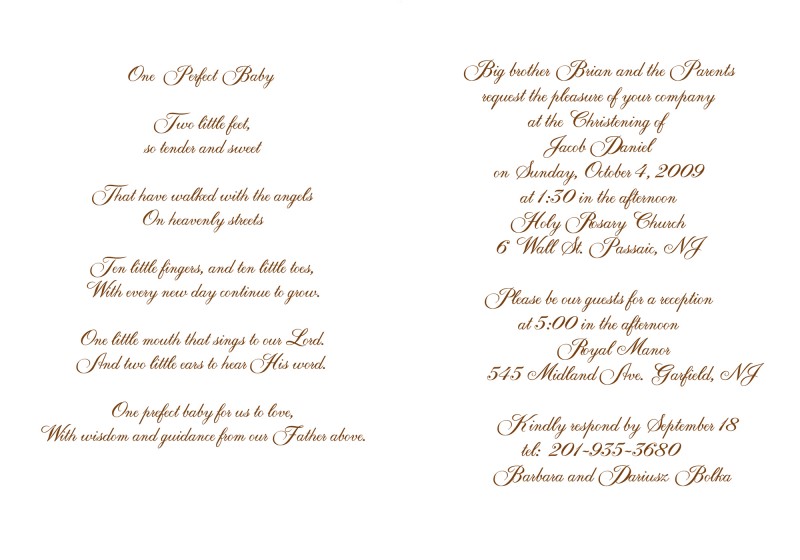 One Perfect Baby
Two little feet,
so tender and sweet
That have walked with the angels
On heavenly streets
Ten little fingers, and ten little toes,
With every new day continue to grow.
One little mouth that sings to our Lord.
And two little ears to hear His word.
One prefect baby for us to love,
With wisdom and guidance from our Father above.
Big brother Brian and the Parents
request the pleasure of your company
at the Christening of
Jacob Daniel
on Sunday, October 4, 2009
at 1:30 in the afternoon
Holy Rosary Church
6 Wall St. Passaic, NJ
Please be our guests for a reception
at 5:00 in the afternoon
Royal Manor
545 Midland Ave. Garfield, NJ
Kindly respond by September 18
tel: 201-935-3680
Barbara and Dariusz Bolka